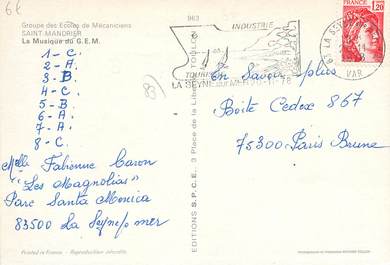 6€
Groupe des Ecoles de Mécaniciens
SAINT-MANDRIER
La Musique du G.E.M.
1 - C.
2 - A.
3 - B.
4 - C.
5 - B
6 - A.
7 - A.
8 - C.
Melle Fabienne Caron
"Les Magnolias"
Parc Santa Monica
83500 La Seyne s/ mer
Printed in France - Reproduction interdite
83
EDITIONS S.P.C.E. 3 Place de la Liberté TOULON
963
INDUSTRIE
TOURISME
LA SEYNE sur MER
VAR
FRANCE
1,20
En Savoir plus
Boîte Cedex 867
75300 - Paris Brune